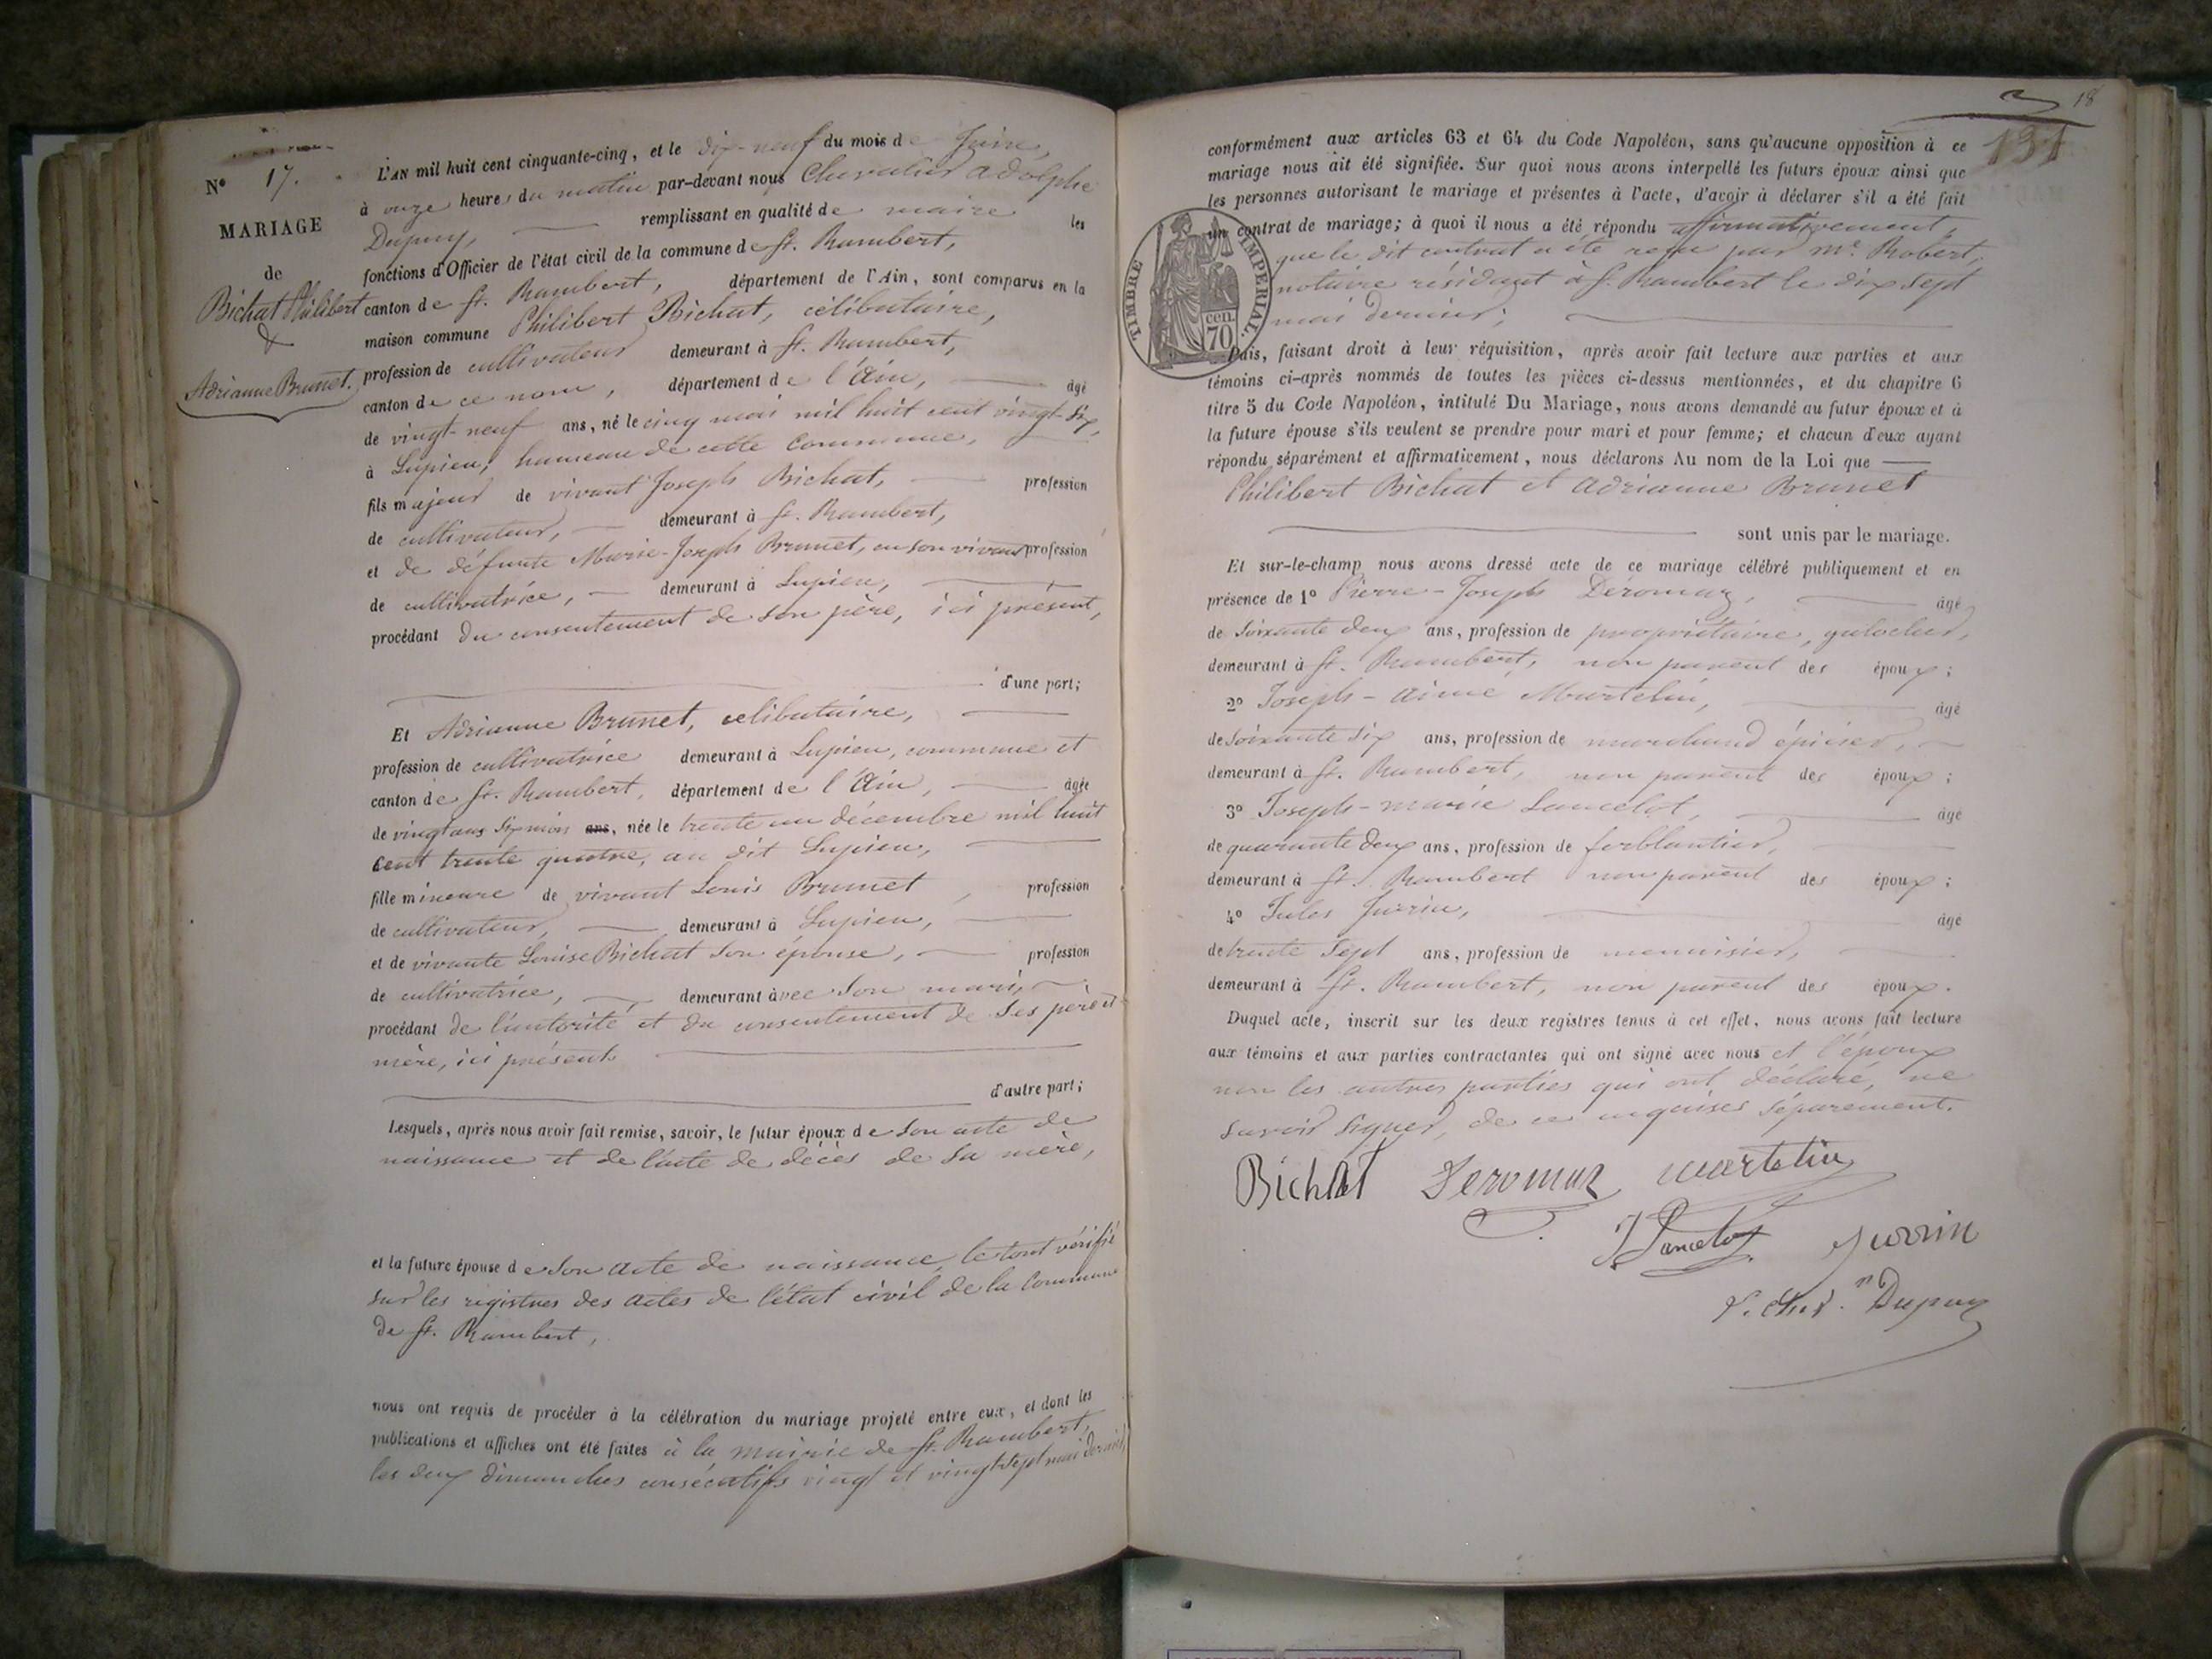 N° 17.
MARIAGE
de
Bichat Philibert
&
Adrianne Brunet.
L'AN mil huit cent cinquante-cinq, et le dix-neuf du mois de Juin,
à onze heures du matin par-devant nous Chevalier Adolphe
Dupuy, remplissant en qualité de maire les
fonctions d'Officier de l'état civil de la commune de St. Rambert,
canton de St. Rambert, département de l'Ain, sont comparus en la
maison commune Philibert Bichat, célibataire,
profession de cultivateur demeurant à St. Rambert,
canton de ce nom, département de l'Ain, âgé
de vingt-neuf ans, né le cinq mai mil huit cent vingt-six,
à Lupieu, hameau de cette commune,
fils majeur de vivant Joseph Bichat, profession
de cultivateur, demeurant à St. Rambert,
et de défunte Marie-Joseph Brunet, en son vivant profession
de cultivatrice, demeurant à Lupieu,
procédant du consentement de son père, ici présent,
d'une part;
Et Adrianne Brunet, célibataire,
profession de cultivatrice demeurant à Lupieu, commune et
canton de St. Rambert, département de l'Ain, âgée
de vingt ans six mois ans, née le trente un décembre mil huit
cent trente quatre, au dit Lupieu,
fille mineure de vivant Louis Brunet, profession
de cultivateur, demeurant à Lupieu,
et de vivante Louise Bichat son épouse, profession
de cultivatrice, demeurant avec son mari,
procédant de l'autorité et du consentement de ses père et
mère, ici présents
d'autre part;
Lesquels, après nous avoir fait remise, savoir, le futur époux de son acte de
naissance et de l'acte de décès de sa mère,
et la future épouse de son acte de naissance, le tout vérifié
sur les registres des actes de l'état civil de la commune
de St. Rambert,
nous ont requis de procéder à la célébration du mariage projeté entre eux, et dont les
publications et affiches ont été faites à la mairie de St. Rambert,
les deux dimanches consécutifs vingt et vingt-sept mai dernier,
18
131
conformément aux articles 63 et 64 du Code Napoléon, sans qu'aucune opposition à ce
mariage nous ait été signifiée. Sur quoi nous avons interpellé les futurs époux ainsi que
les personnes autorisant le mariage et présentes à l'acte, d'avoir à déclarer s'il a été fait
un contrat de mariage; à quoi il nous a été répondu affirmativement,
que le dit contrat a été reçu par Me. Robert,
notaire résidant à St. Rambert le dix sept
mai dernier;
TIMBRE IMPÉRIAL.
cen.
70
Puis, faisant droit à leur réquisition, après avoir fait lecture aux parties et aux
témoins ci-après nommés de toutes les pièces ci-dessus mentionnées, et du chapitre 6
titre 5 du Code Napoléon, intitulé Du Mariage, nous avons demandé au futur époux et à
la future épouse s'ils veulent se prendre pour mari et pour femme; et chacun d'eux ayant
répondu séparément et affirmativement, nous déclarons Au nom de la Loi que
Philibert Bichat et Adrianne Brunet
sont unis par le mariage.
Et sur-le-champ nous avons dressé acte de ce mariage célébré publiquement et en
présence de 1° Pierre-Joseph Déromaz, âgé
de soixante deux ans, profession de propriétaire, galocher,
demeurant à St. Rambert, non parent des époux;
2° Joseph-Aimé Martelin, âgé
de soixante six ans, profession de marchand épicier,
demeurant à St. Rambert, non parent des époux;
3° Joseph-Marie Lancelot, âgé
de quarante deux ans, profession de ferblantier,
demeurant à St. Rambert non parent des époux;
4° Jules Juvrin, âgé
de trente sept ans, profession de menuisier,
demeurant à St. Rambert, non parent des époux.
Duquel acte, inscrit sur les deux registres tenus à cet effet, nous avons fait lecture
aux témoins et aux parties contractantes qui ont signé avec nous et l'époux
non les autres parties qui ont déclaré, ne
savoir signer, de ce requises séparément.
Bichat Deromaz Martelin
J Lancelot Juvrin
Dupuy